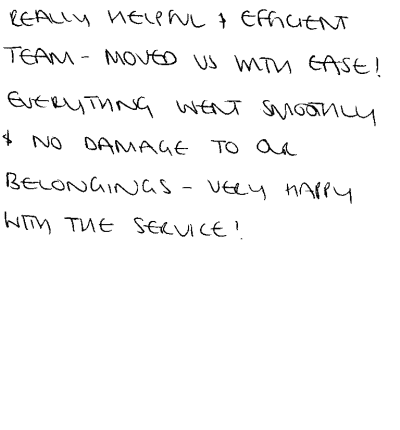 REALLY HELPFUL & EFFICIENT
TEAM - MOVED US WITH EASE!
EVERYTHING WENT SMOOTHLY
& NO DAMAGE TO OUR
BELONGINGS - VERY HAPPY
WITH THE SERVICE!